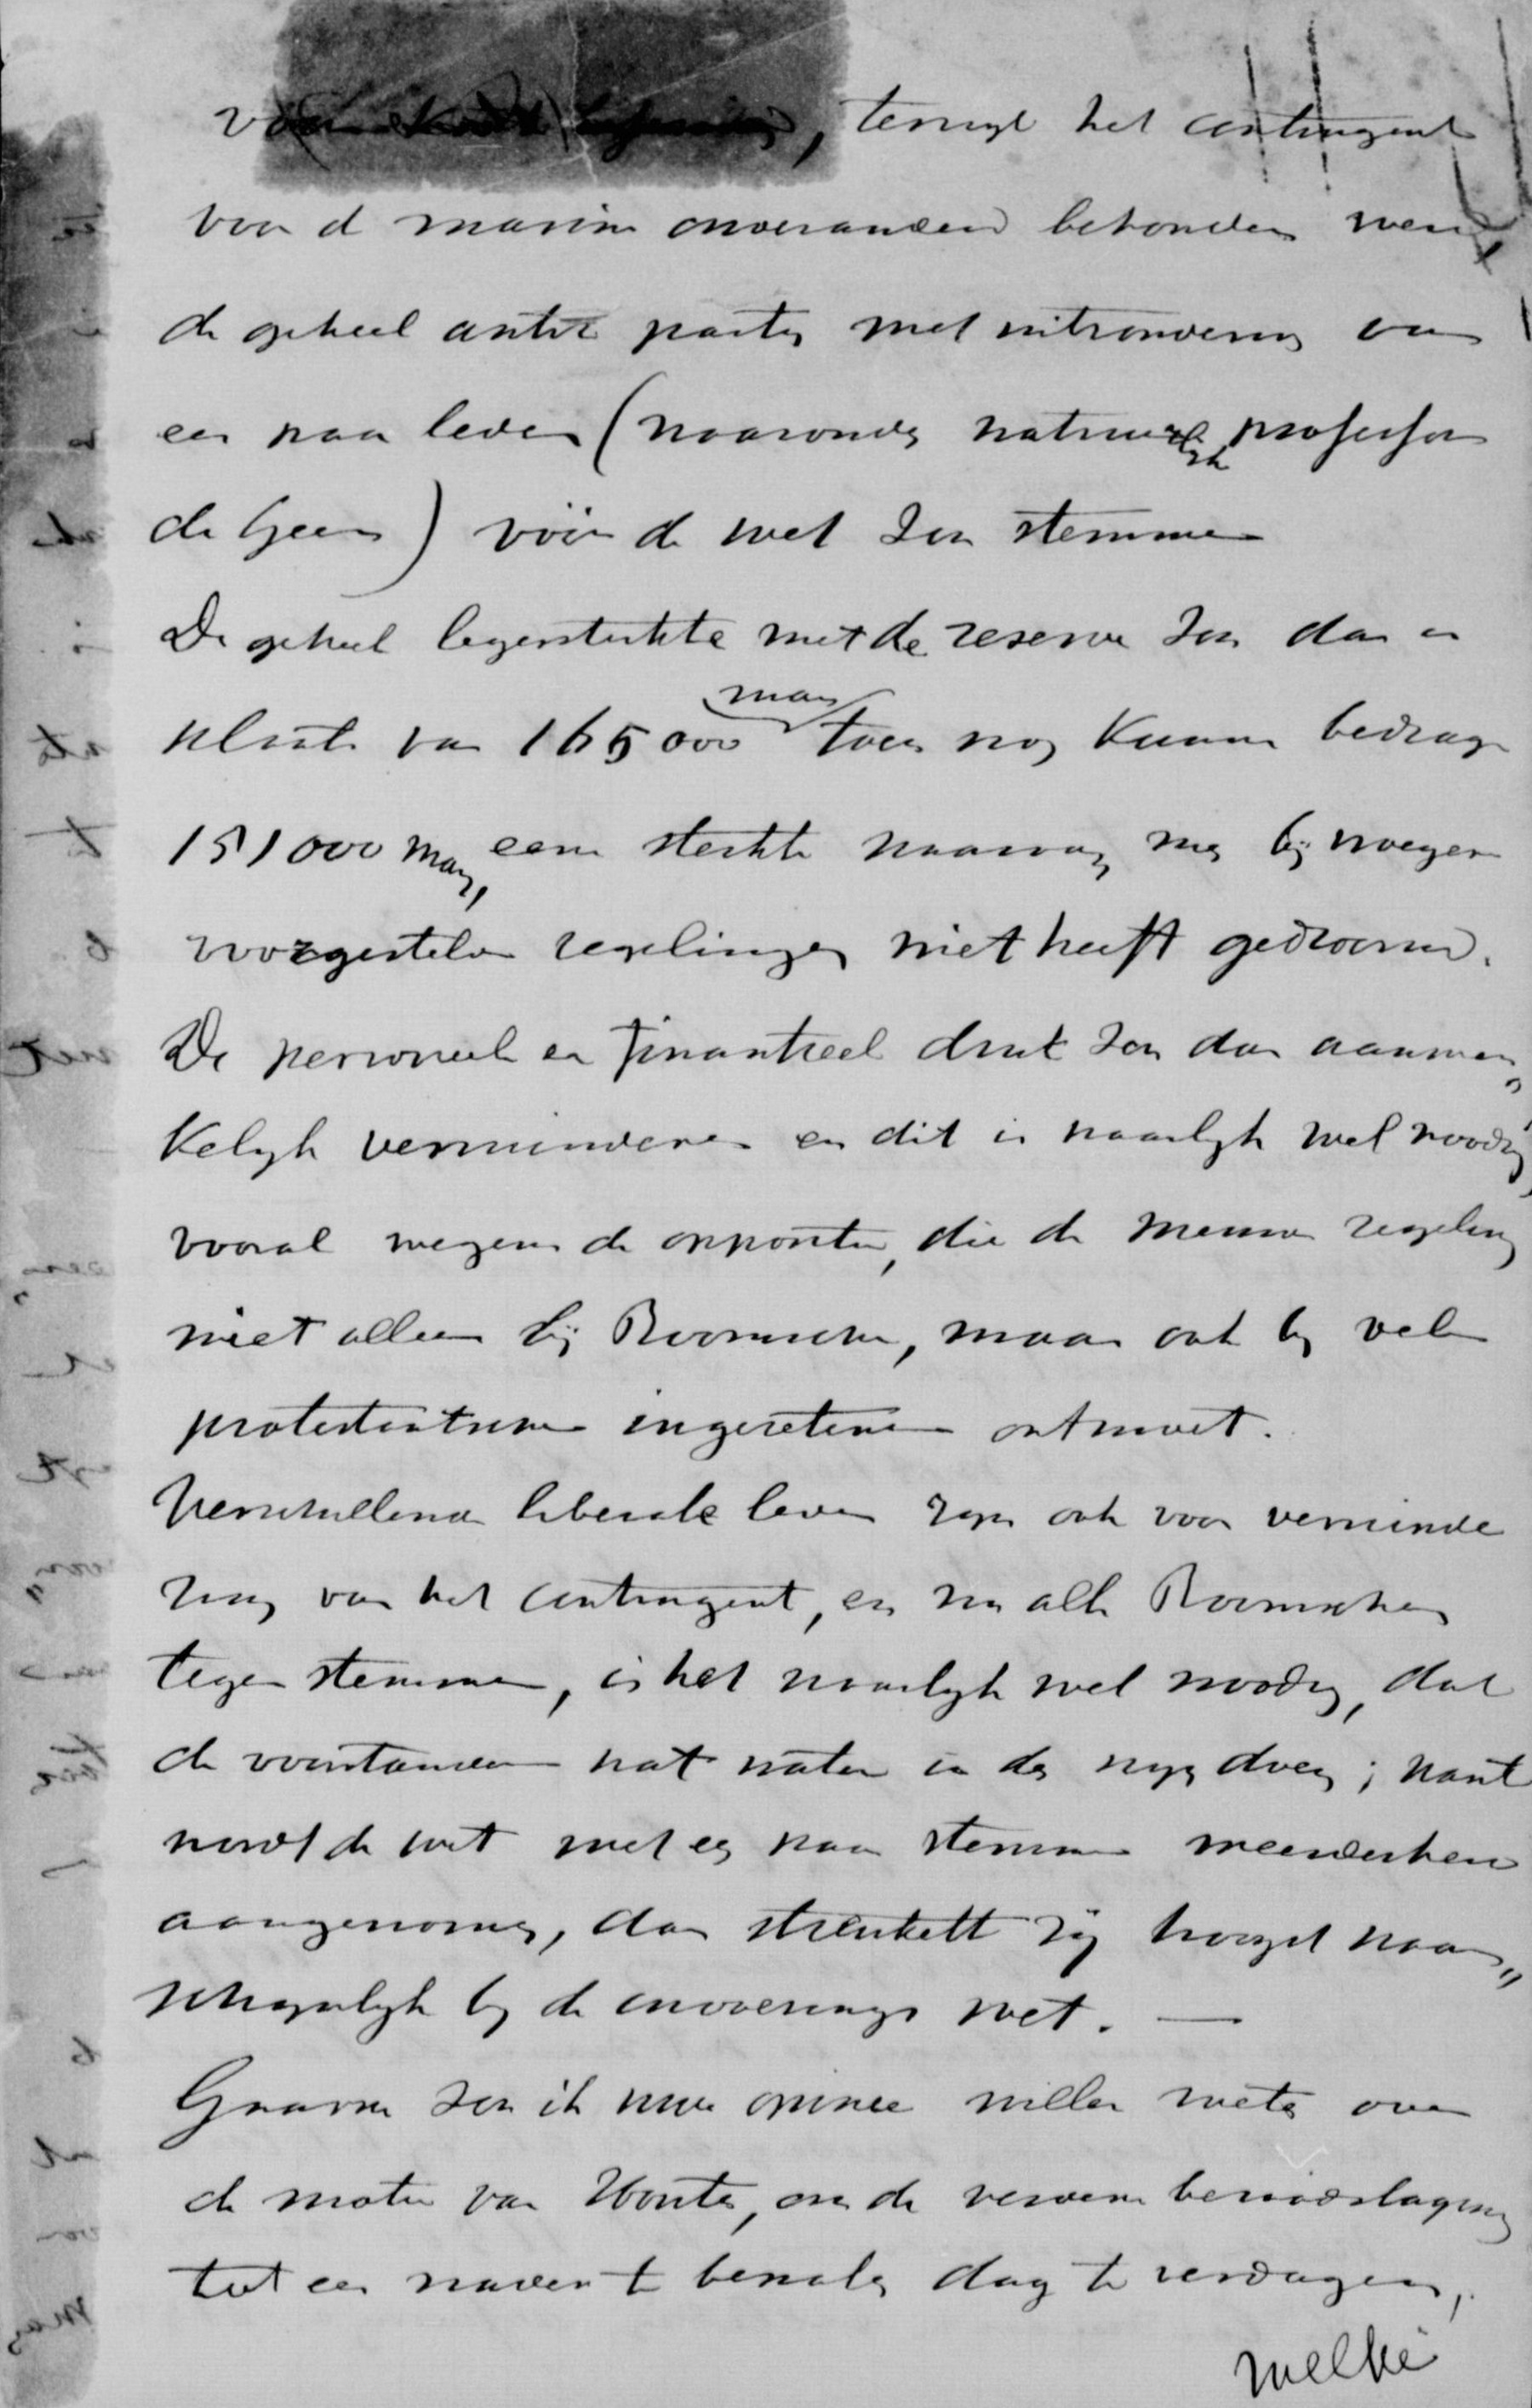 , terwijl het contingent
voor de marine onveranderd behouden werd
de geheel antir party met uitzondering van
een paar leden (waaronder natuurlijk professor
de Geer) vóór de wet zou stemmen
De geheel legersterkte met de reserve zou dan in
plaats van 165000 man toch nog kunnen bedragen
151000 man, eene sterkte waarvan men bij vroeger
voorgestelde regelingen niet heeft gedroomd.
De personeele en finantieel druk zou dan aanmer„
kelijk verminderen en dit is waarlijk wel noodig,
vooral wegens de oppositie, die de nieuwe regeling
niet alleen bij Roomschen, maar ook bij vele
protestantsche ingezetenen ontmoet.
Verschillende liberale leden zijn ook voor verminde
ring van het contingent, en nu alle Roomschen
tegen stemmen, is het waarlijk wel noodig, dat
de voorstanders wat water in den wijn doen; want
wordt de wet met een paar stemmen meerderheid
aangenomen, dan struikelt zij hoogst waar„
schijnlijk bij de invoerings wet. —
Gaarne zou ik uwe opinie willen weten over
de motie van Houten, om de verdere beraadslaging
tot een nader te bepalen dag te verdagen,
welke